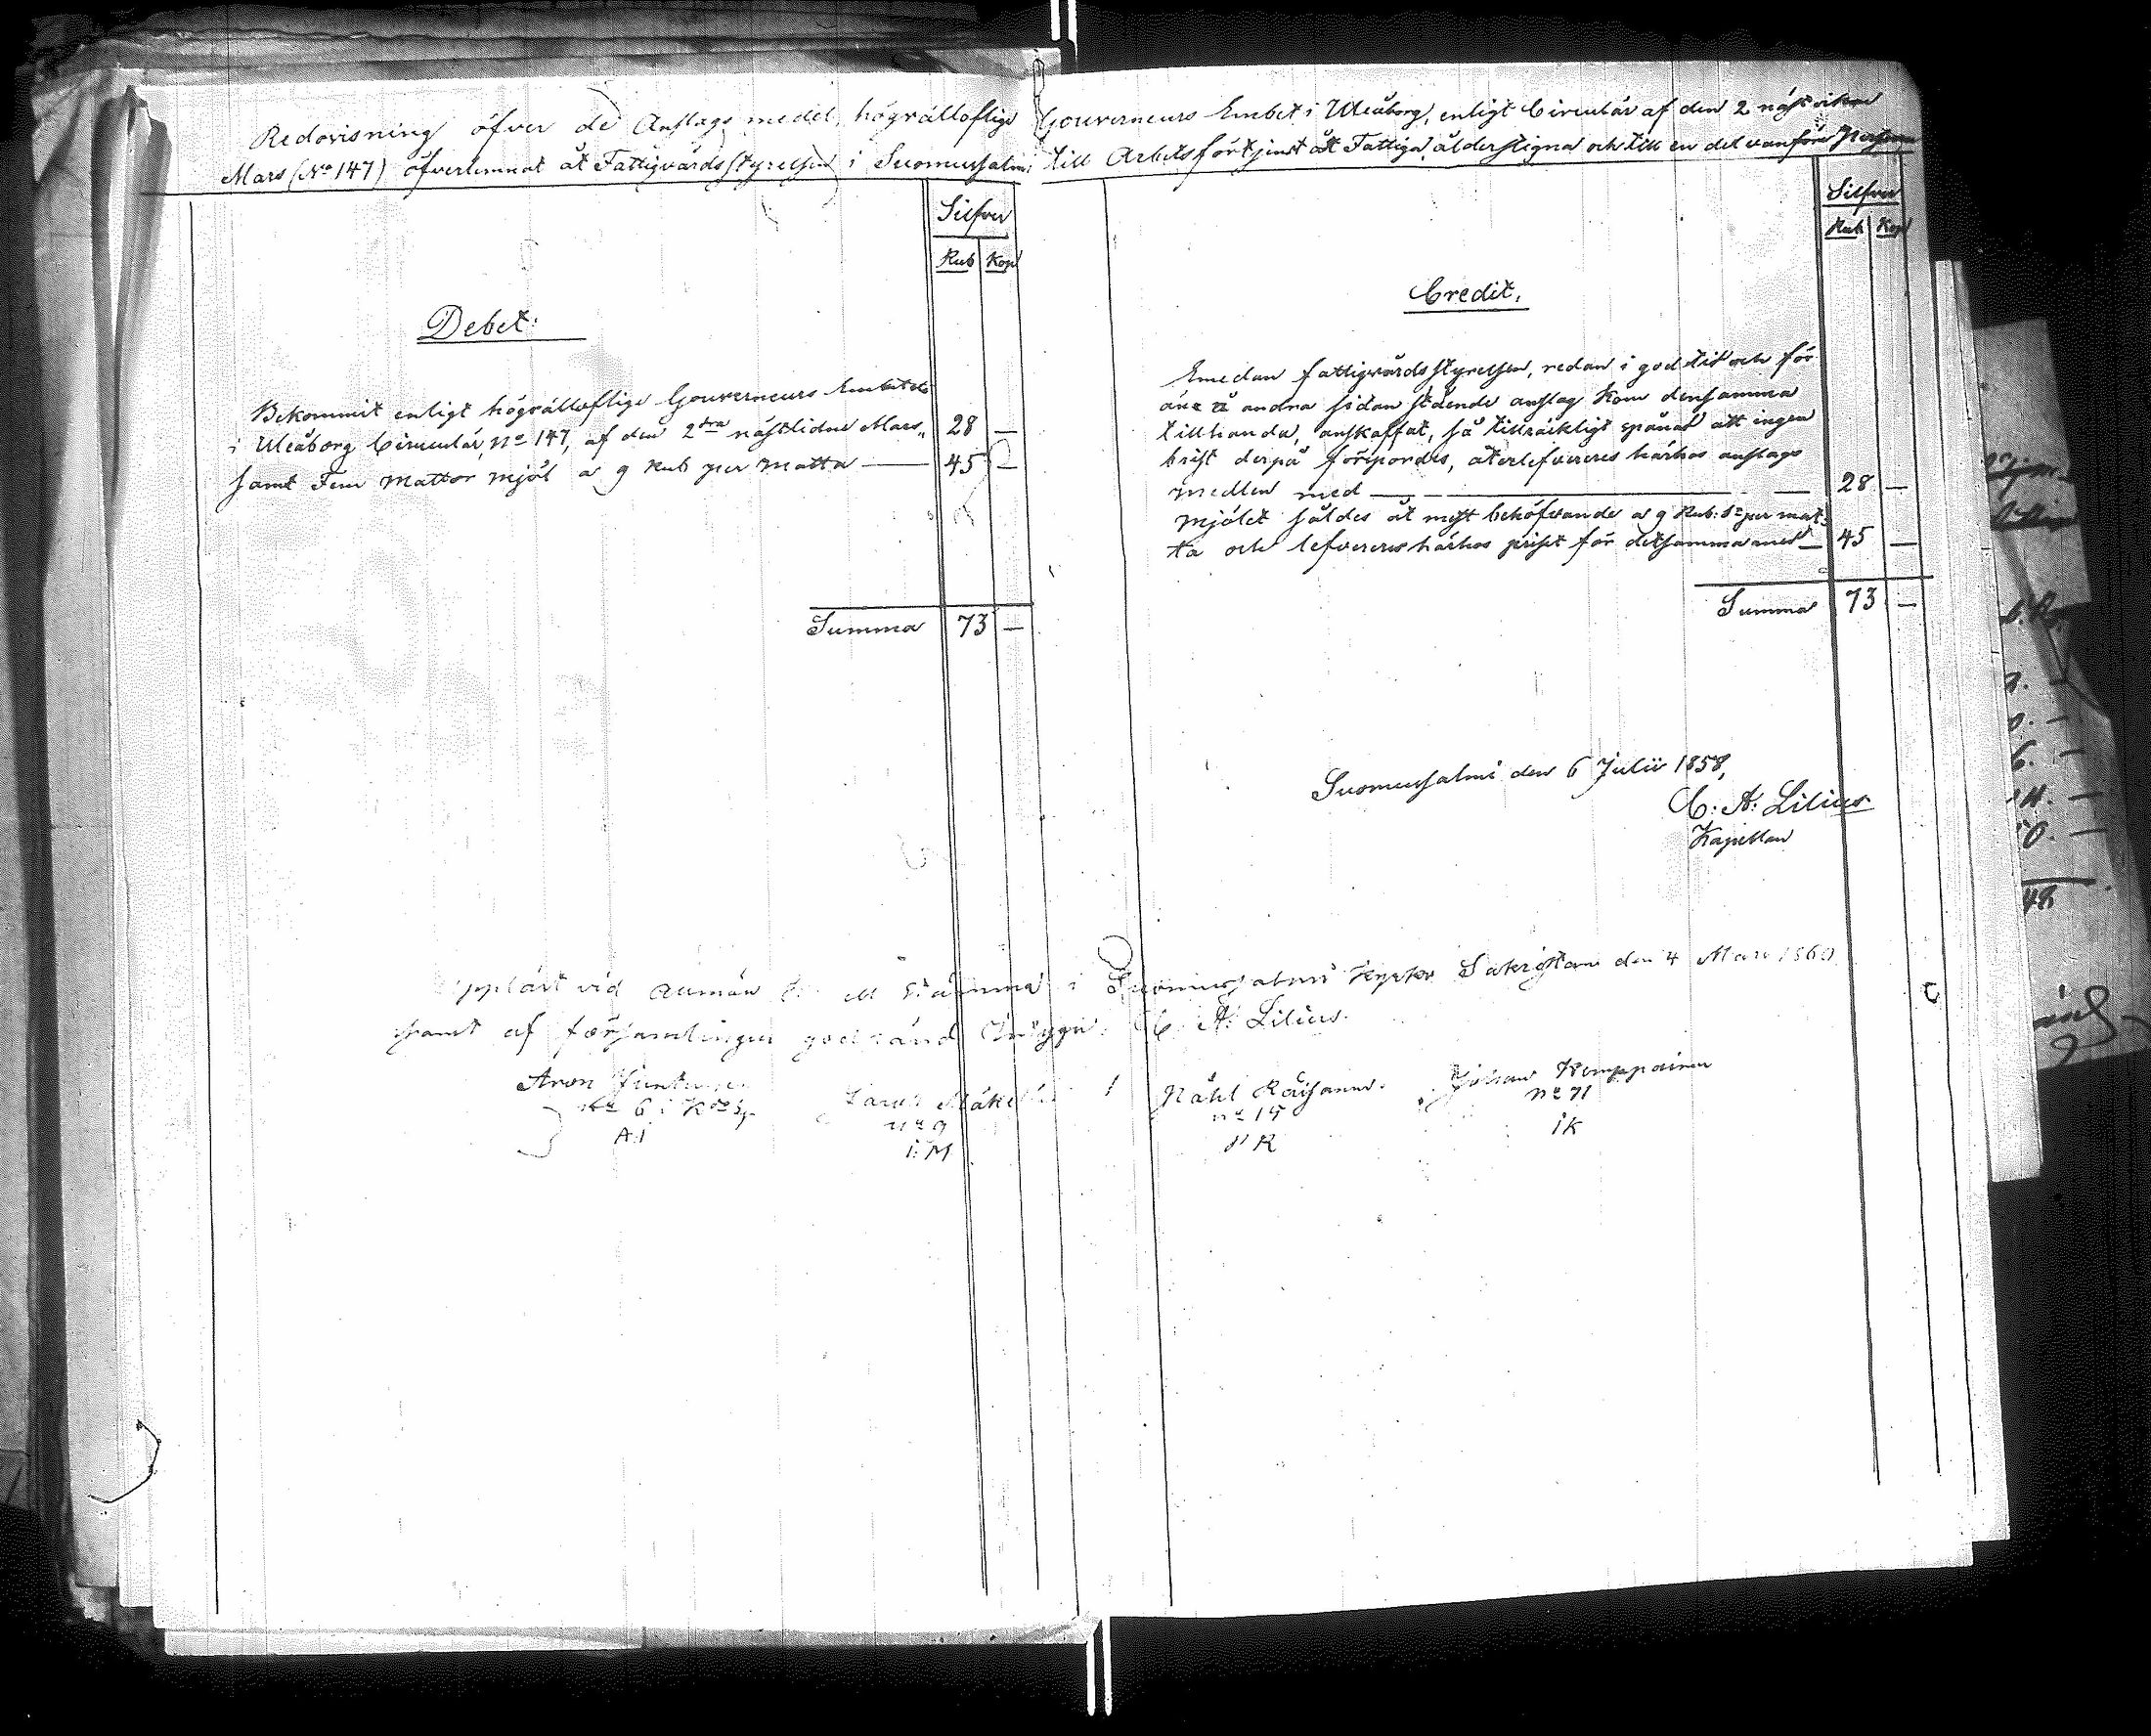 Redovisning öfver de Anslags medel, högvälloflige Gouverneurs Embet i Uleåborg, enligt Circulär af den 2 näst vikne
Mars (No 147) öfverlemnat åt Fattigvårdsstyrelsen i Suomussalmi till Arbetsförtjenst åt Fattiga, ålderstigna och till en del vanföra Personer
Silfver
Rub Kop
Debet:
Bekommit enligt högvälloflige Gouverneurs Embetets
i Uleåborg Circulär, No 147, af den 2dra nästlidne Mars, 28 —
samt Fem Mattor mjöl a 9 Rub per Matta — 45 —
Summa 73 —
Silfver
Rub Kop
Credit.
Emedan fattigvårdsstyrelsen, redan i god tid och för
än å andra sidan stående anslag kom densamma
tillhanda, anskaffat, så tillräckligt spånad att ingen
brist derpå förspordes, återlefvereres härhos anslags
medlen med — 28 —
Mjölet såldes åt mest behöfvande a 9 Rub: Sr per mat-
ta och lefvereres härhos priset för detsamma med — 45 —
Summa 73 —
Suomussalmi den 6 Julii 1858,
C: A: Lilius
Kapellan
Uppläst vid allmän stämma i Suomussalmi Kyrko Sakristian den 4 Mars 1860
samt af församlingen godkänd, intygar. C. A: Lilius.
Aron Juntunen Mäke Påhl Räisänen Johan Kemppainen
No 6 i No 9 No 15 No 71
A.I i: M P R i K